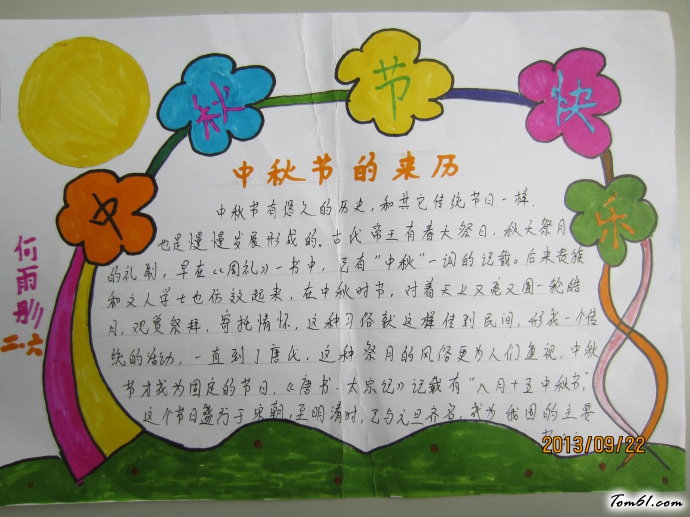 中秋节快乐
中秋节的来历
中秋节有悠久的历史，和其它传统节日一样，
也是慢慢发展形成的。古代帝王有春天祭日，秋天祭月
的礼制，早在《周礼》一书中，已有“中秋”一词的记载。后来贵族
和文人学士也仿效起来，在中秋时节，对着天上又亮又圆一轮皓
月，观赏祭拜，寄托情怀，这种习俗就这样传到民间，形成一个传
统的活动，一直到了唐代，这种祭月的风俗更为人们重视，中秋
节才成为固定的节日，《唐书·太宗记》记载有“八月十五中秋节”，
这个节日盛行于宋朝，至明清时，已与元旦齐名，成为我国的主要
何雨彤
二.六
2013/09/22
Tom61.com